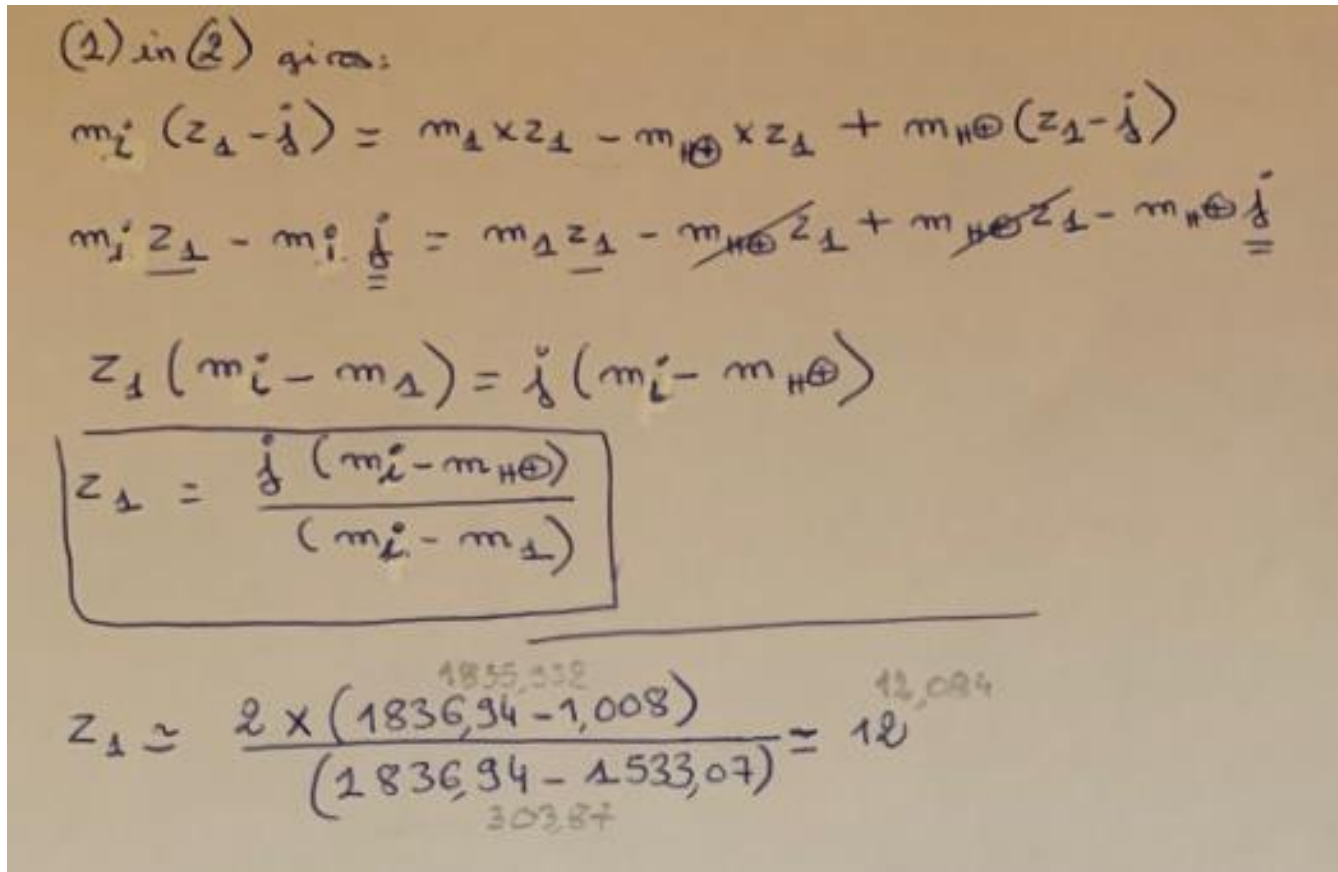 (1) in (2) gives:
mᵢ (z₁-j) = m₁ x z₁ - m_H⊕ x z₁ + m_H⊕ (z₁-j)
mᵢ z₁ - mᵢ j = m₁ z₁ - m_H⊕ z₁ + m_H⊕ z₁ - m_H⊕ j
z₁ (mᵢ - m₁) = j (mᵢ - m_H⊕)
z₁ = j (mᵢ - m_H⊕) / (mᵢ - m₁)
1835,932 12,084
z₁ ≃ 2 x (1836,94 - 1,008) / (1836,94 - 1533,07) ≃ 12
303,87